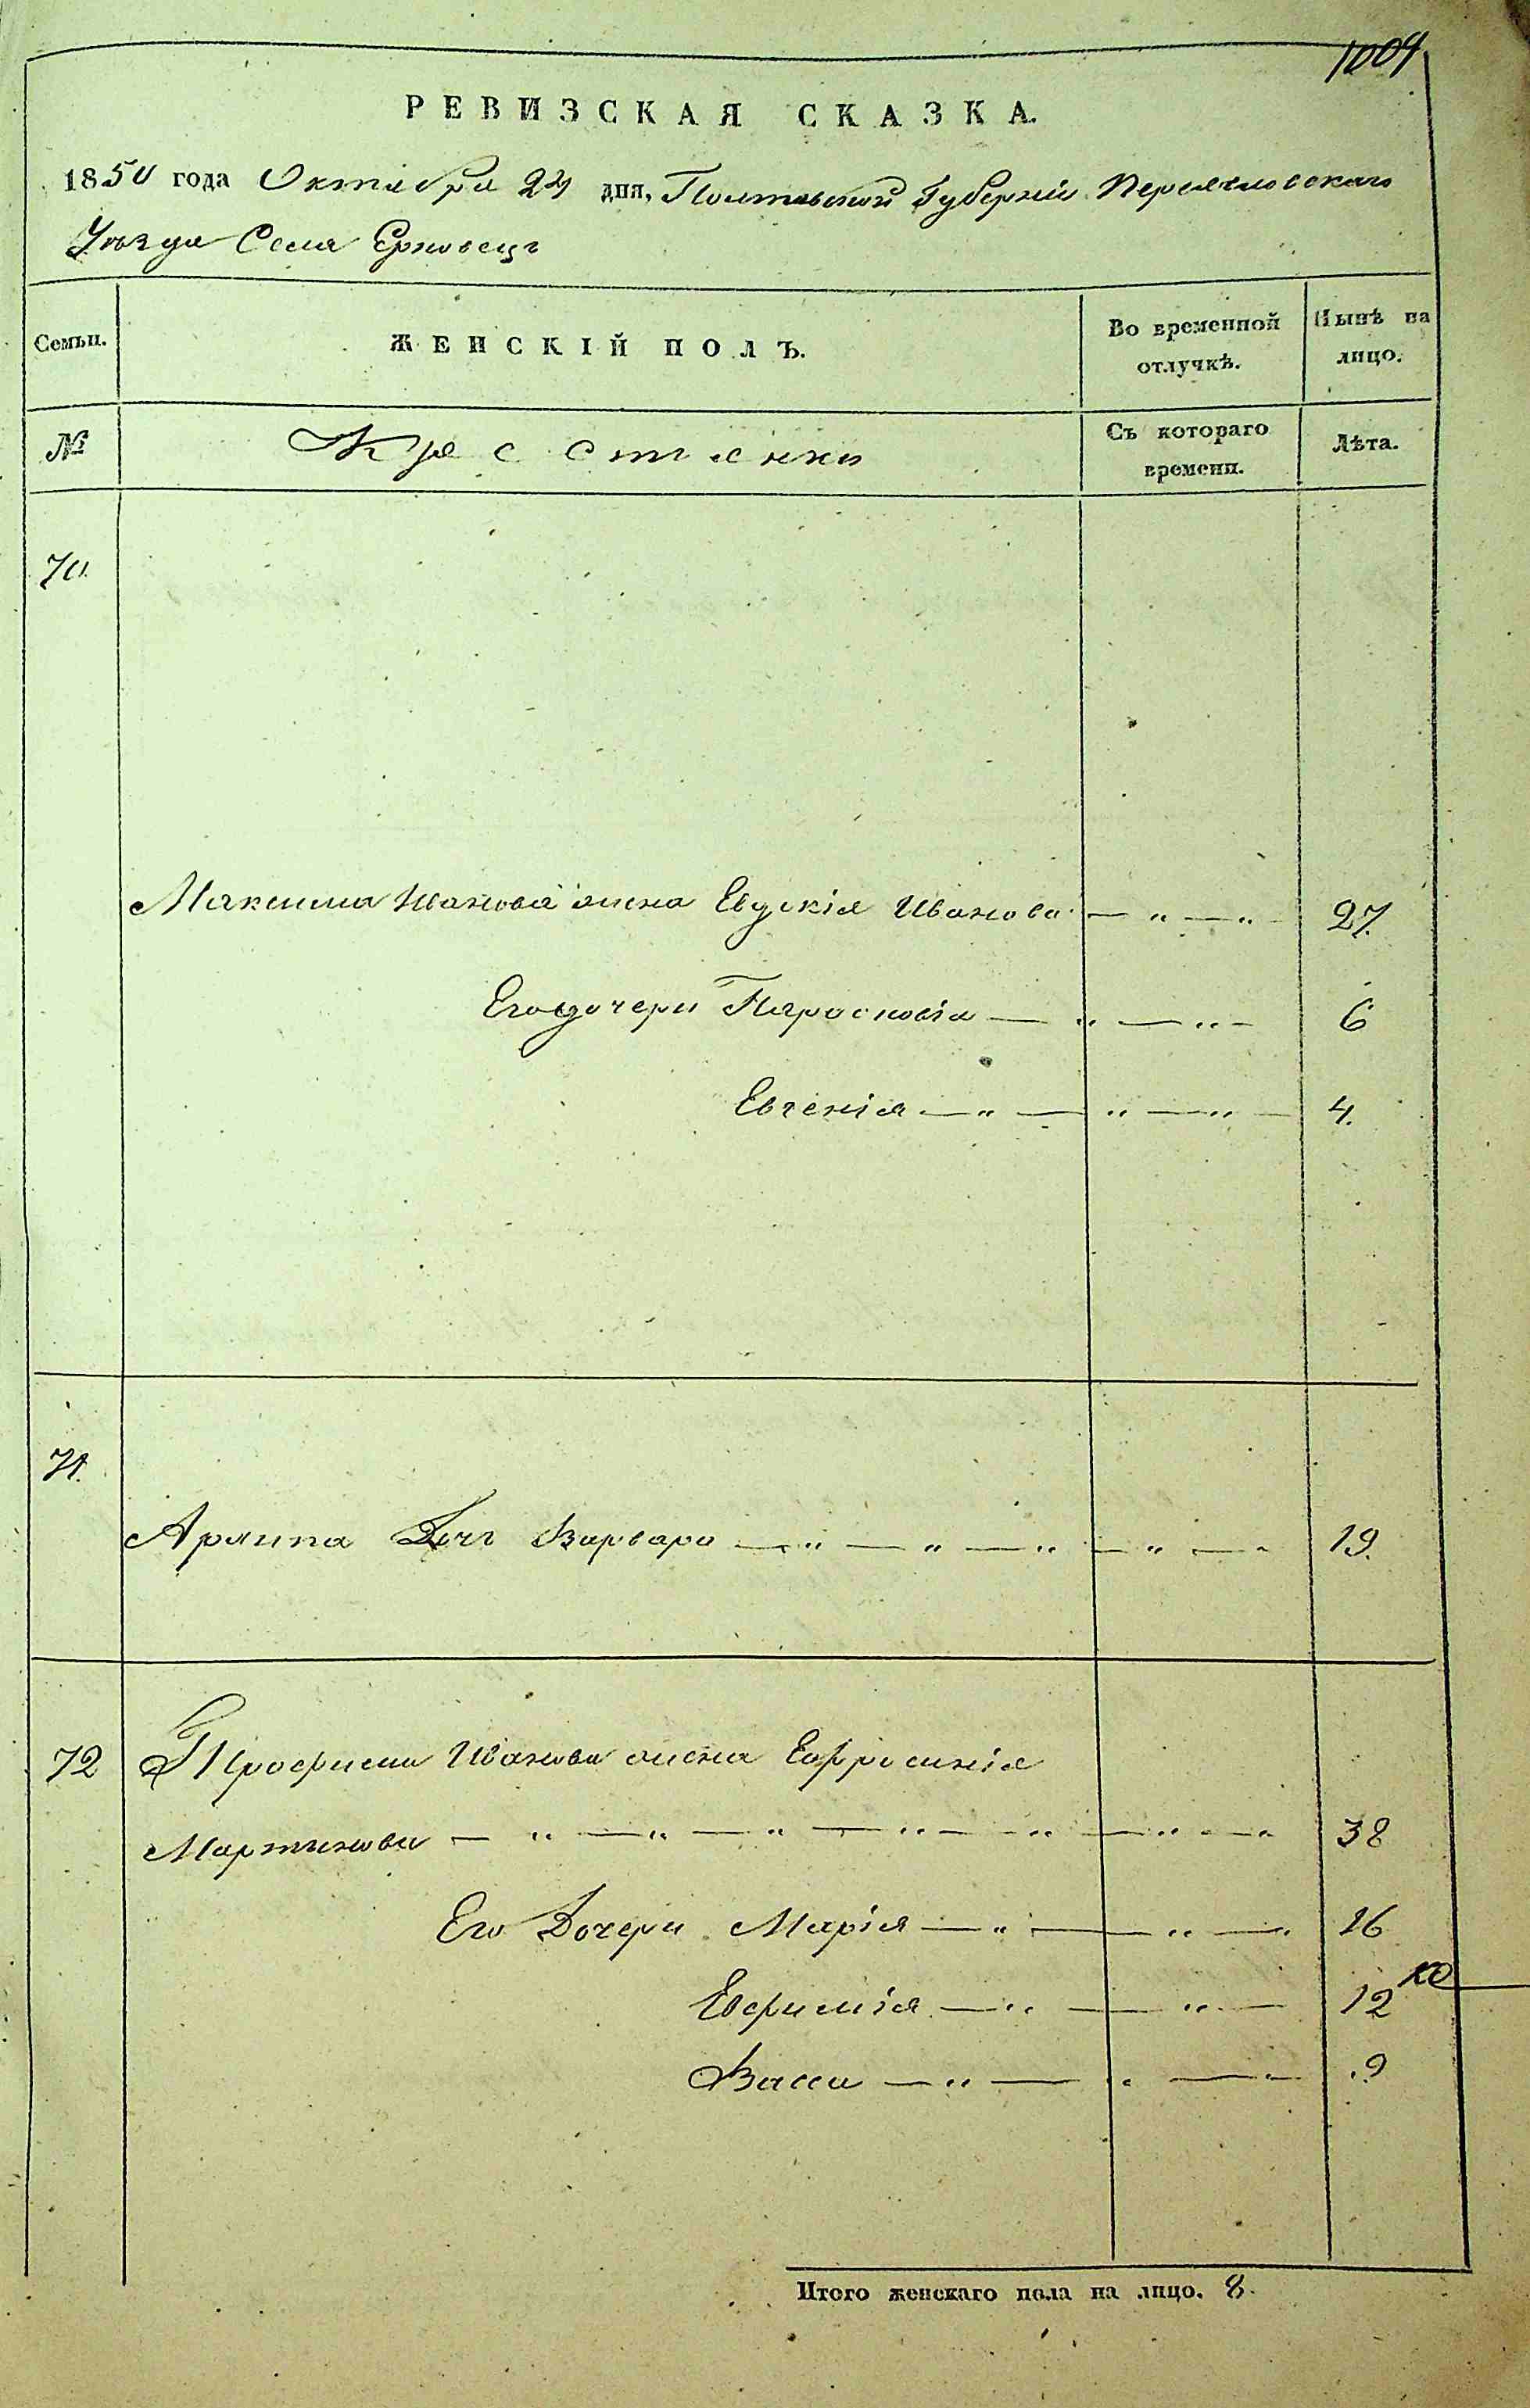 1004
РЕВИЗСКАЯ СКАЗКА.
1850 года Октября 24 дня, Полтавской Губерніи Переяславскаго
Уезда Села Ерковец
Семьи.
ЖЕНСКІЙ ПОЛЪ.
Во временной отлучкѣ.
Нынѣ на лицо.
№
Крестьянки
Съ котораго времени.
Лѣта.
70.
Максима Иванова жена Евдокія Иванова — " — " 27.
Его дочери Парасковія — " — " — 6
Евгенія — " — " — " — 4.
71.
Архипа Дочь Варвара — " — " — " — " — " 19.
72 Трофима Иванова жена Евфросинія
Мартинова — " — " — " — " — " — " — " 38
Его Дочери Марія — " — " — " 16
Евфимія — " — " — 12
Васса — " — " — 9
Итого женскаго пола на лицо. 8.